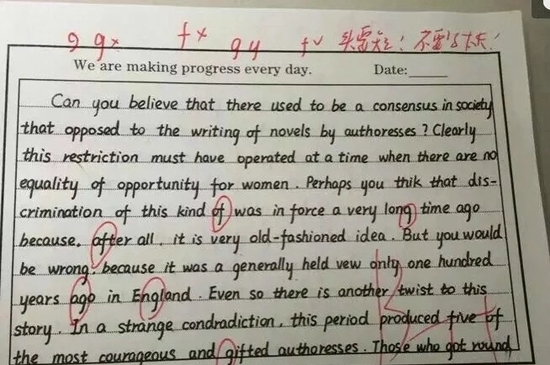 g× f× gy f✓ 头 短! 不要 太长!
We are making progress every day. Date:
Can you believe that there used to be a consensus in society
that opposed to the writing of novels by authoresses ? Clearly
this restriction must have operated at a time when there are no
equality of opportunity for women . Perhaps you thik that dis-
crimination of this kind of was in force a very long time ago
because, after all , it is very old-fashioned idea . But you would
be wrong, because it was a generally held vew only one hundred
years ago in England . Even so there is another twist to this
story . In a strange condradiction , this period produced five of
the most courageous and gifted authoresses . Those who got round